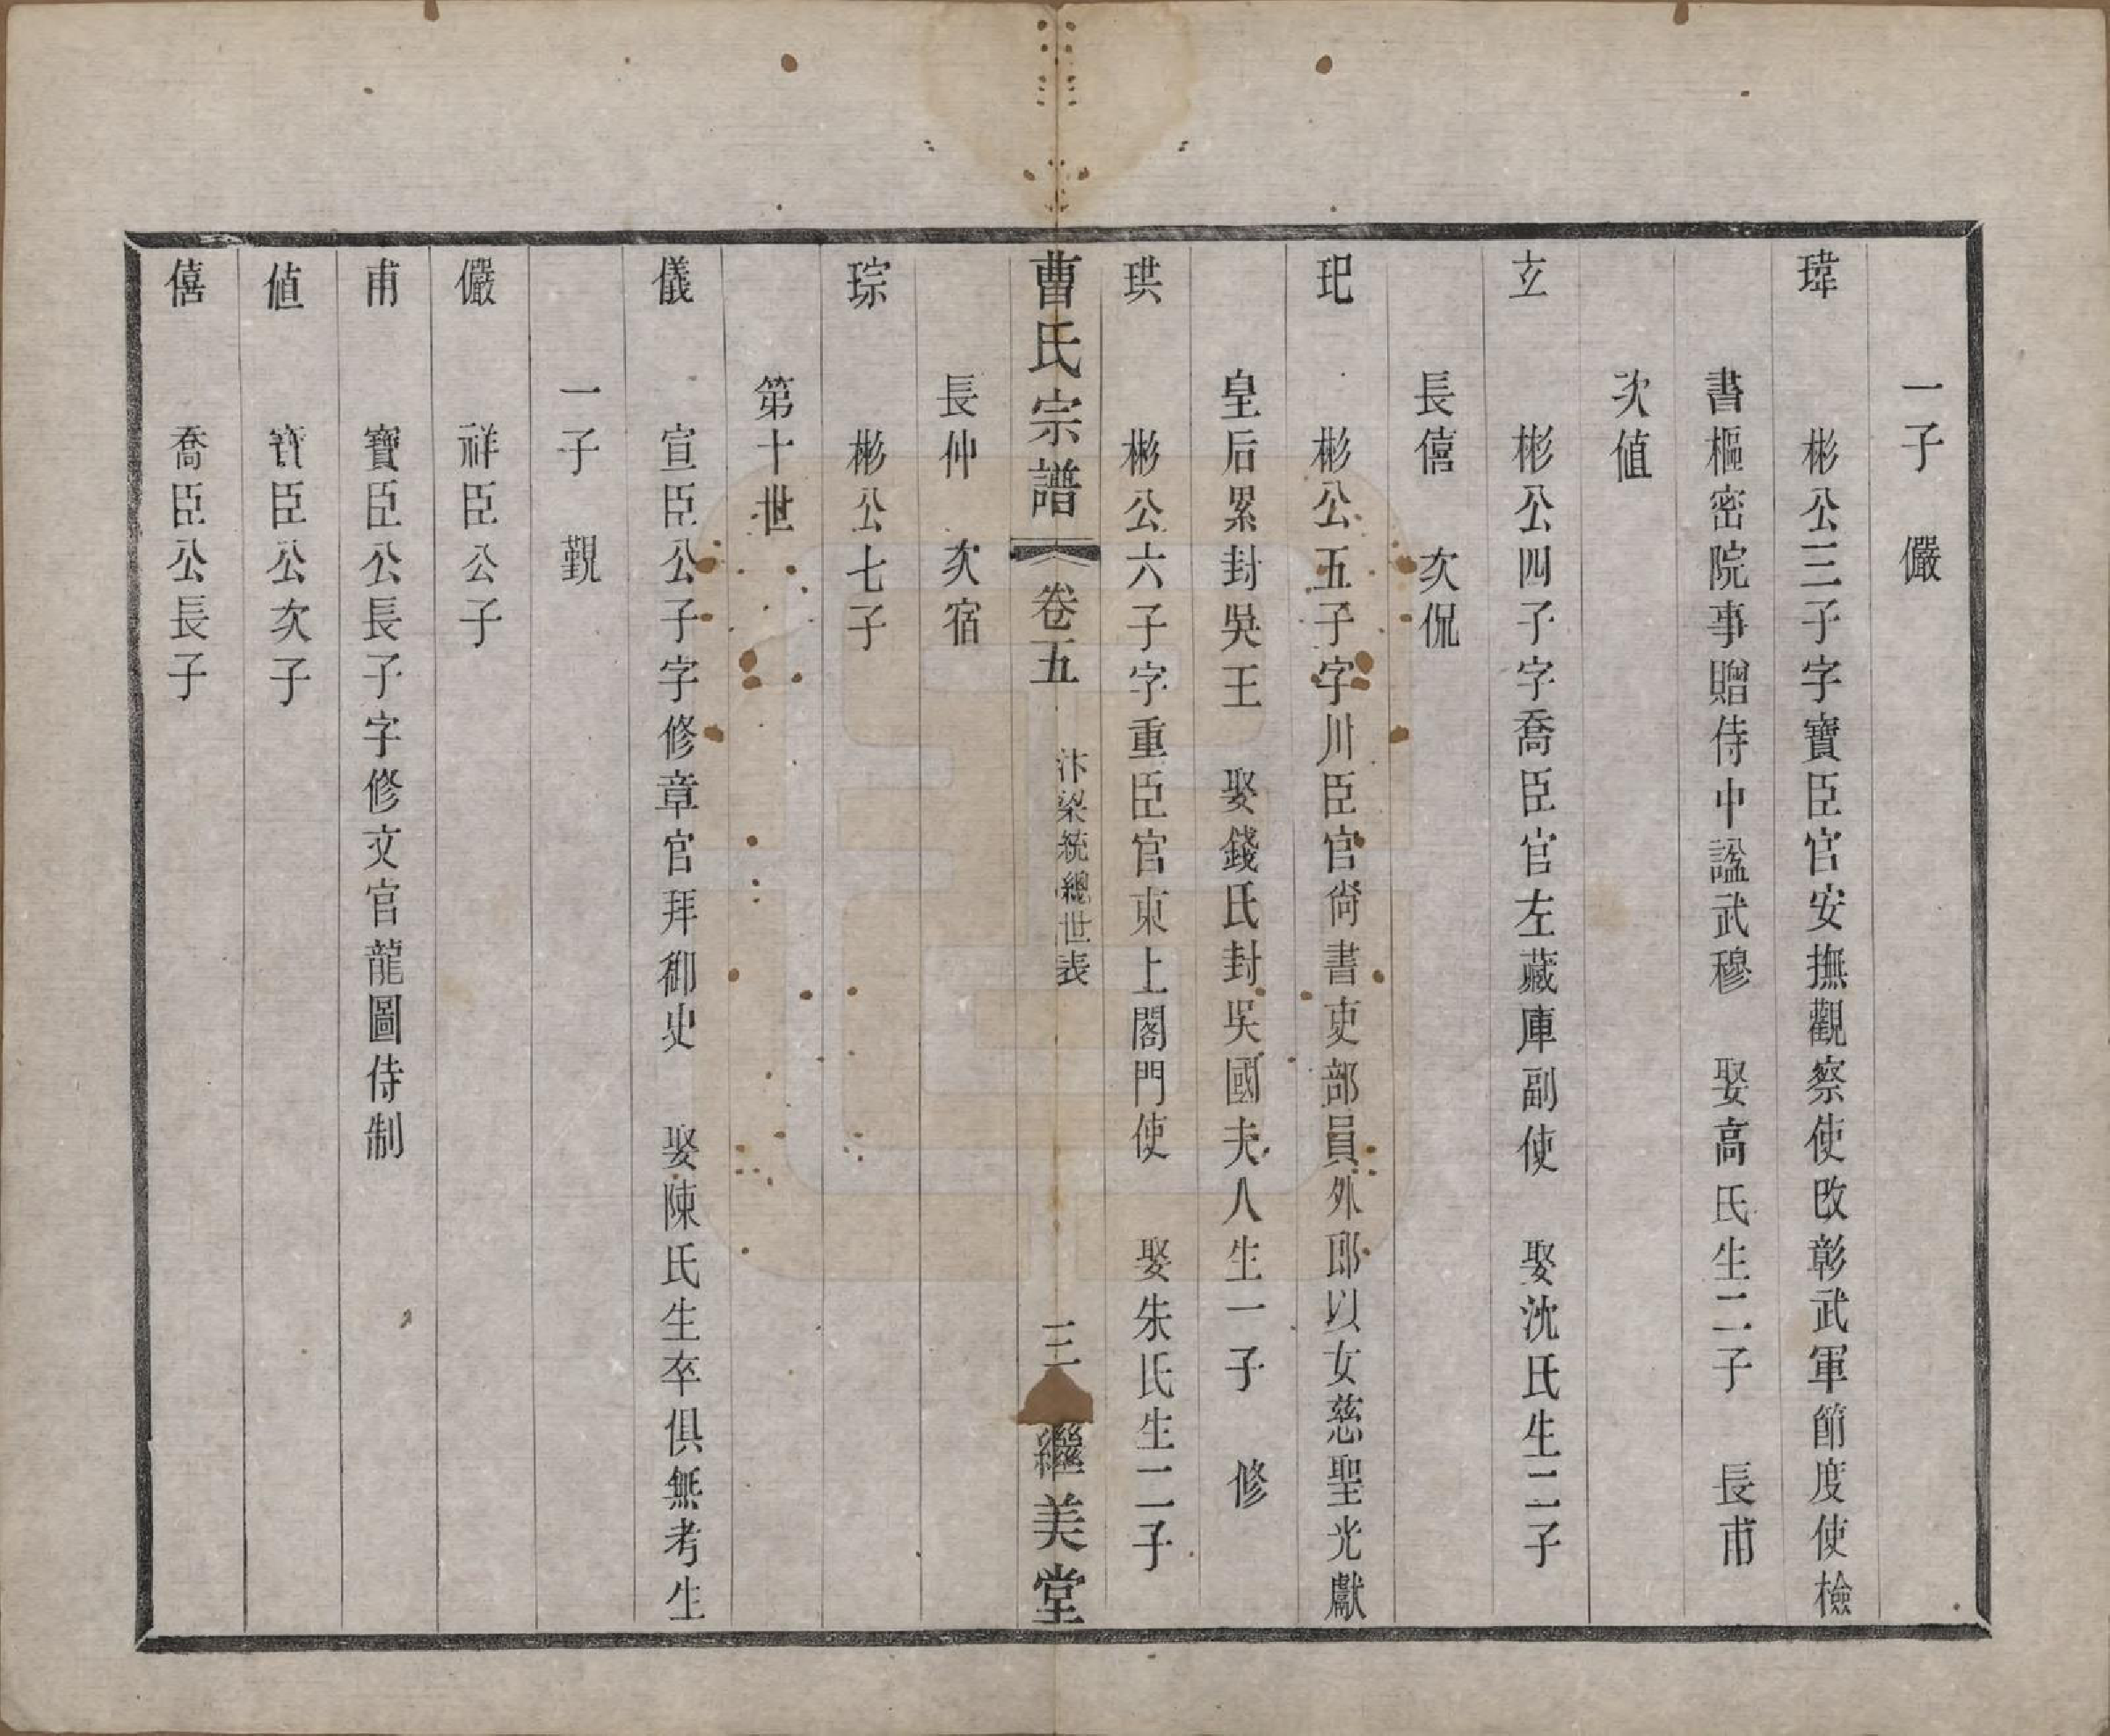 一子　儼
瑋　彬公三子字寶臣官安撫觀察使改彰武軍節度使檢
書樞密院事贈侍中諡武穆　娶高氏生二子　長甫
次値
玄　彬公四子字喬臣官左藏庫副使　娶沈氏生二子
長僖　次侃
玘　彬公五子字川臣官尙書吏部員外郎以女慈聖光獻
皇后累封吳王　娶錢氏封吳國夫人生一子　修
珙　彬公六子字重臣官東上閣門使　娶朱氏生二子
曹氏宗譜　卷五　汴梁統總世表　三　繼美堂
長仲　次宿
琮　彬公七子
第十世
儀　宣臣公子字修章官拜御史　娶陳氏生卒俱無考生
一子　覲
儼　祥臣公子
甫　寶臣公長子字修文官龍圖侍制
値　寶臣公次子
僖　喬臣公長子